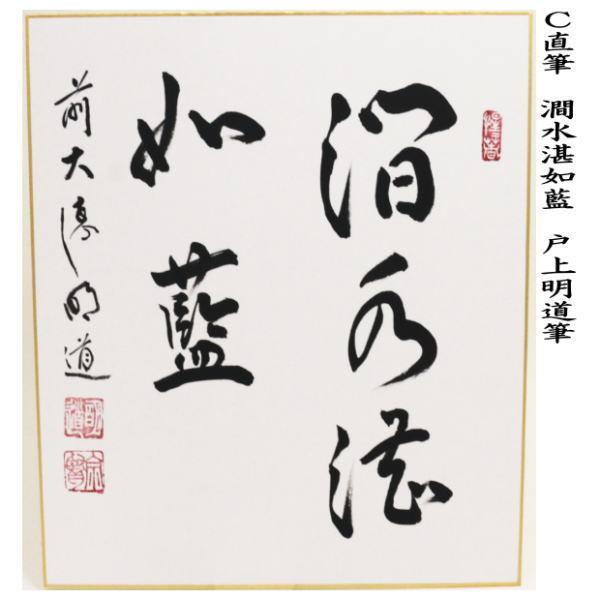 C直筆　澗水湛如藍　戸上明道筆
澗水湛
如藍
前大徳明道